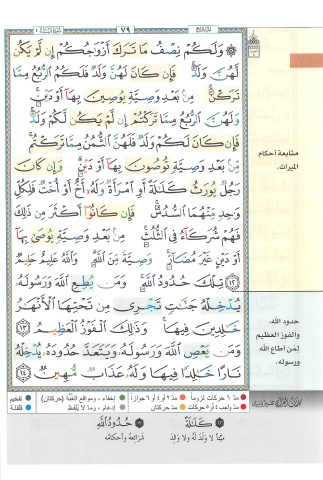 ٧٩
۞ وَلَكُمْ نِصْفُ مَا تَرَكَ أَزْوَٰجُكُمْ إِن لَّمْ يَكُن
لَّهُنَّ وَلَدٌ ۚ فَإِن كَانَ لَهُنَّ وَلَدٌ فَلَكُمُ ٱلرُّبُعُ مِمَّا
تَرَكْنَ ۚ مِنۢ بَعْدِ وَصِيَّةٍ يُوصِينَ بِهَآ أَوْ دَيْنٍ ۚ
وَلَهُنَّ ٱلرُّبُعُ مِمَّا تَرَكْتُمْ إِن لَّمْ يَكُن لَّكُمْ وَلَدٌ ۚ
فَإِن كَانَ لَكُمْ وَلَدٌ فَلَهُنَّ ٱلثُّمُنُ مِمَّا تَرَكْتُم ۚ
مِّنۢ بَعْدِ وَصِيَّةٍ تُوصُونَ بِهَآ أَوْ دَيْنٍ ۗ وَإِن كَانَ
رَجُلٌ يُورَثُ كَلَٰلَةً أَوِ ٱمْرَأَةٌ وَلَهُۥٓ أَخٌ أَوْ أُخْتٌ فَلِكُلِّ
وَٰحِدٍ مِّنْهُمَا ٱلسُّدُسُ ۚ فَإِن كَانُوٓا۟ أَكْثَرَ مِن ذَٰلِكَ
فَهُمْ شُرَكَآءُ فِى ٱلثُّلُثِ ۚ مِنۢ بَعْدِ وَصِيَّةٍ يُوصَىٰ بِهَآ
أَوْ دَيْنٍ غَيْرَ مُضَآرٍّ ۚ وَصِيَّةً مِّنَ ٱللَّهِ ۗ وَٱللَّهُ عَلِيمٌ حَلِيمٌ
١٢ تِلْكَ حُدُودُ ٱللَّهِ ۚ وَمَن يُطِعِ ٱللَّهَ وَرَسُولَهُۥ
يُدْخِلْهُ جَنَّٰتٍ تَجْرِى مِن تَحْتِهَا ٱلْأَنْهَٰرُ
خَٰلِدِينَ فِيهَا ۚ وَذَٰلِكَ ٱلْفَوْزُ ٱلْعَظِيمُ ١٣
وَمَن يَعْصِ ٱللَّهَ وَرَسُولَهُۥ وَيَتَعَدَّ حُدُودَهُۥ يُدْخِلْهُ
نَارًا خَٰلِدًا فِيهَا وَلَهُۥ عَذَابٌ مُّهِينٌ ١٤
متابعة أحكام
الميراث.
حدود الله،
والفوز العظيم
لمن أطاع الله
ورسوله.
مدّ ٦ حركات لزوماً مدّ ٢ أو ٤ أو ٦ جوازاً إخفاء، ومواقع الغُنَّة (حركتان) تفخيم
مدّ واجب ٤ أو ٥ حركات مدّ حركتان إدغام، وما لا يُلفَظ قلقلة
١٢ كَلَالَةً
ميتاً لا ولد له ولا والد
١٣ حُدُودُ اللَّهِ
شرائعه وأحكامه